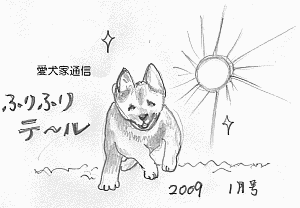 愛犬家通信
ふりふり
テ〜ル
2009 1月号